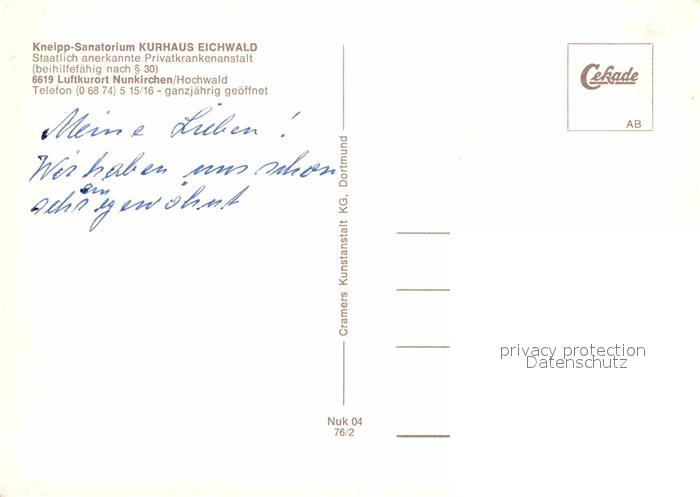 Kneipp-Sanatorium KURHAUS EICHWALD
Staatlich anerkannte Privatkrankenanstalt
(beihilfefähig nach § 30)
6619 Luftkurort Nunkirchen/Hochwald
Telefon (0 68 74) 5 15/16 - ganzjährig geöffnet
Meine Lieben!
Wir haben uns schon
sehr eingewöhnt
Cramers Kunstanstalt KG, Dortmund
Nuk 04
76/2
Cekade
AB
privacy protection
Datenschutz